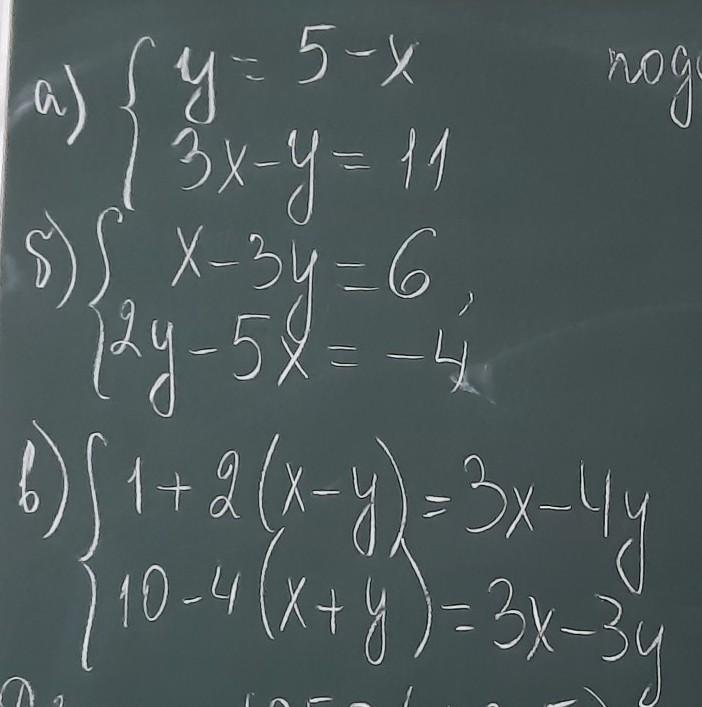 а) { y = 5 - x
3x - y = 11
б) { x - 3y = 6,
2y - 5x = -4
в) { 1 + 2(x - y) = 3x - 4y
10 - 4(x + y) = 3x - 3y